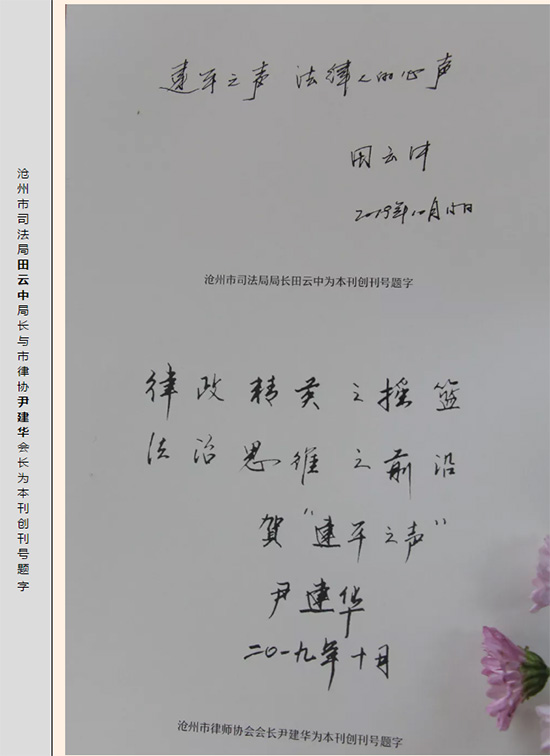 沧州市司法局田云中局长与市律协尹建华会长为本刊创刊号题字
建平之声 法律人的心声
田云中
2019年10月15日
沧州市司法局局长田云中为本刊创刊号题字
律政精英之摇篮
法治思维之前沿
贺“建平之声”
尹建华
二〇一九年十月
沧州市律师协会会长尹建华为本刊创刊号题字